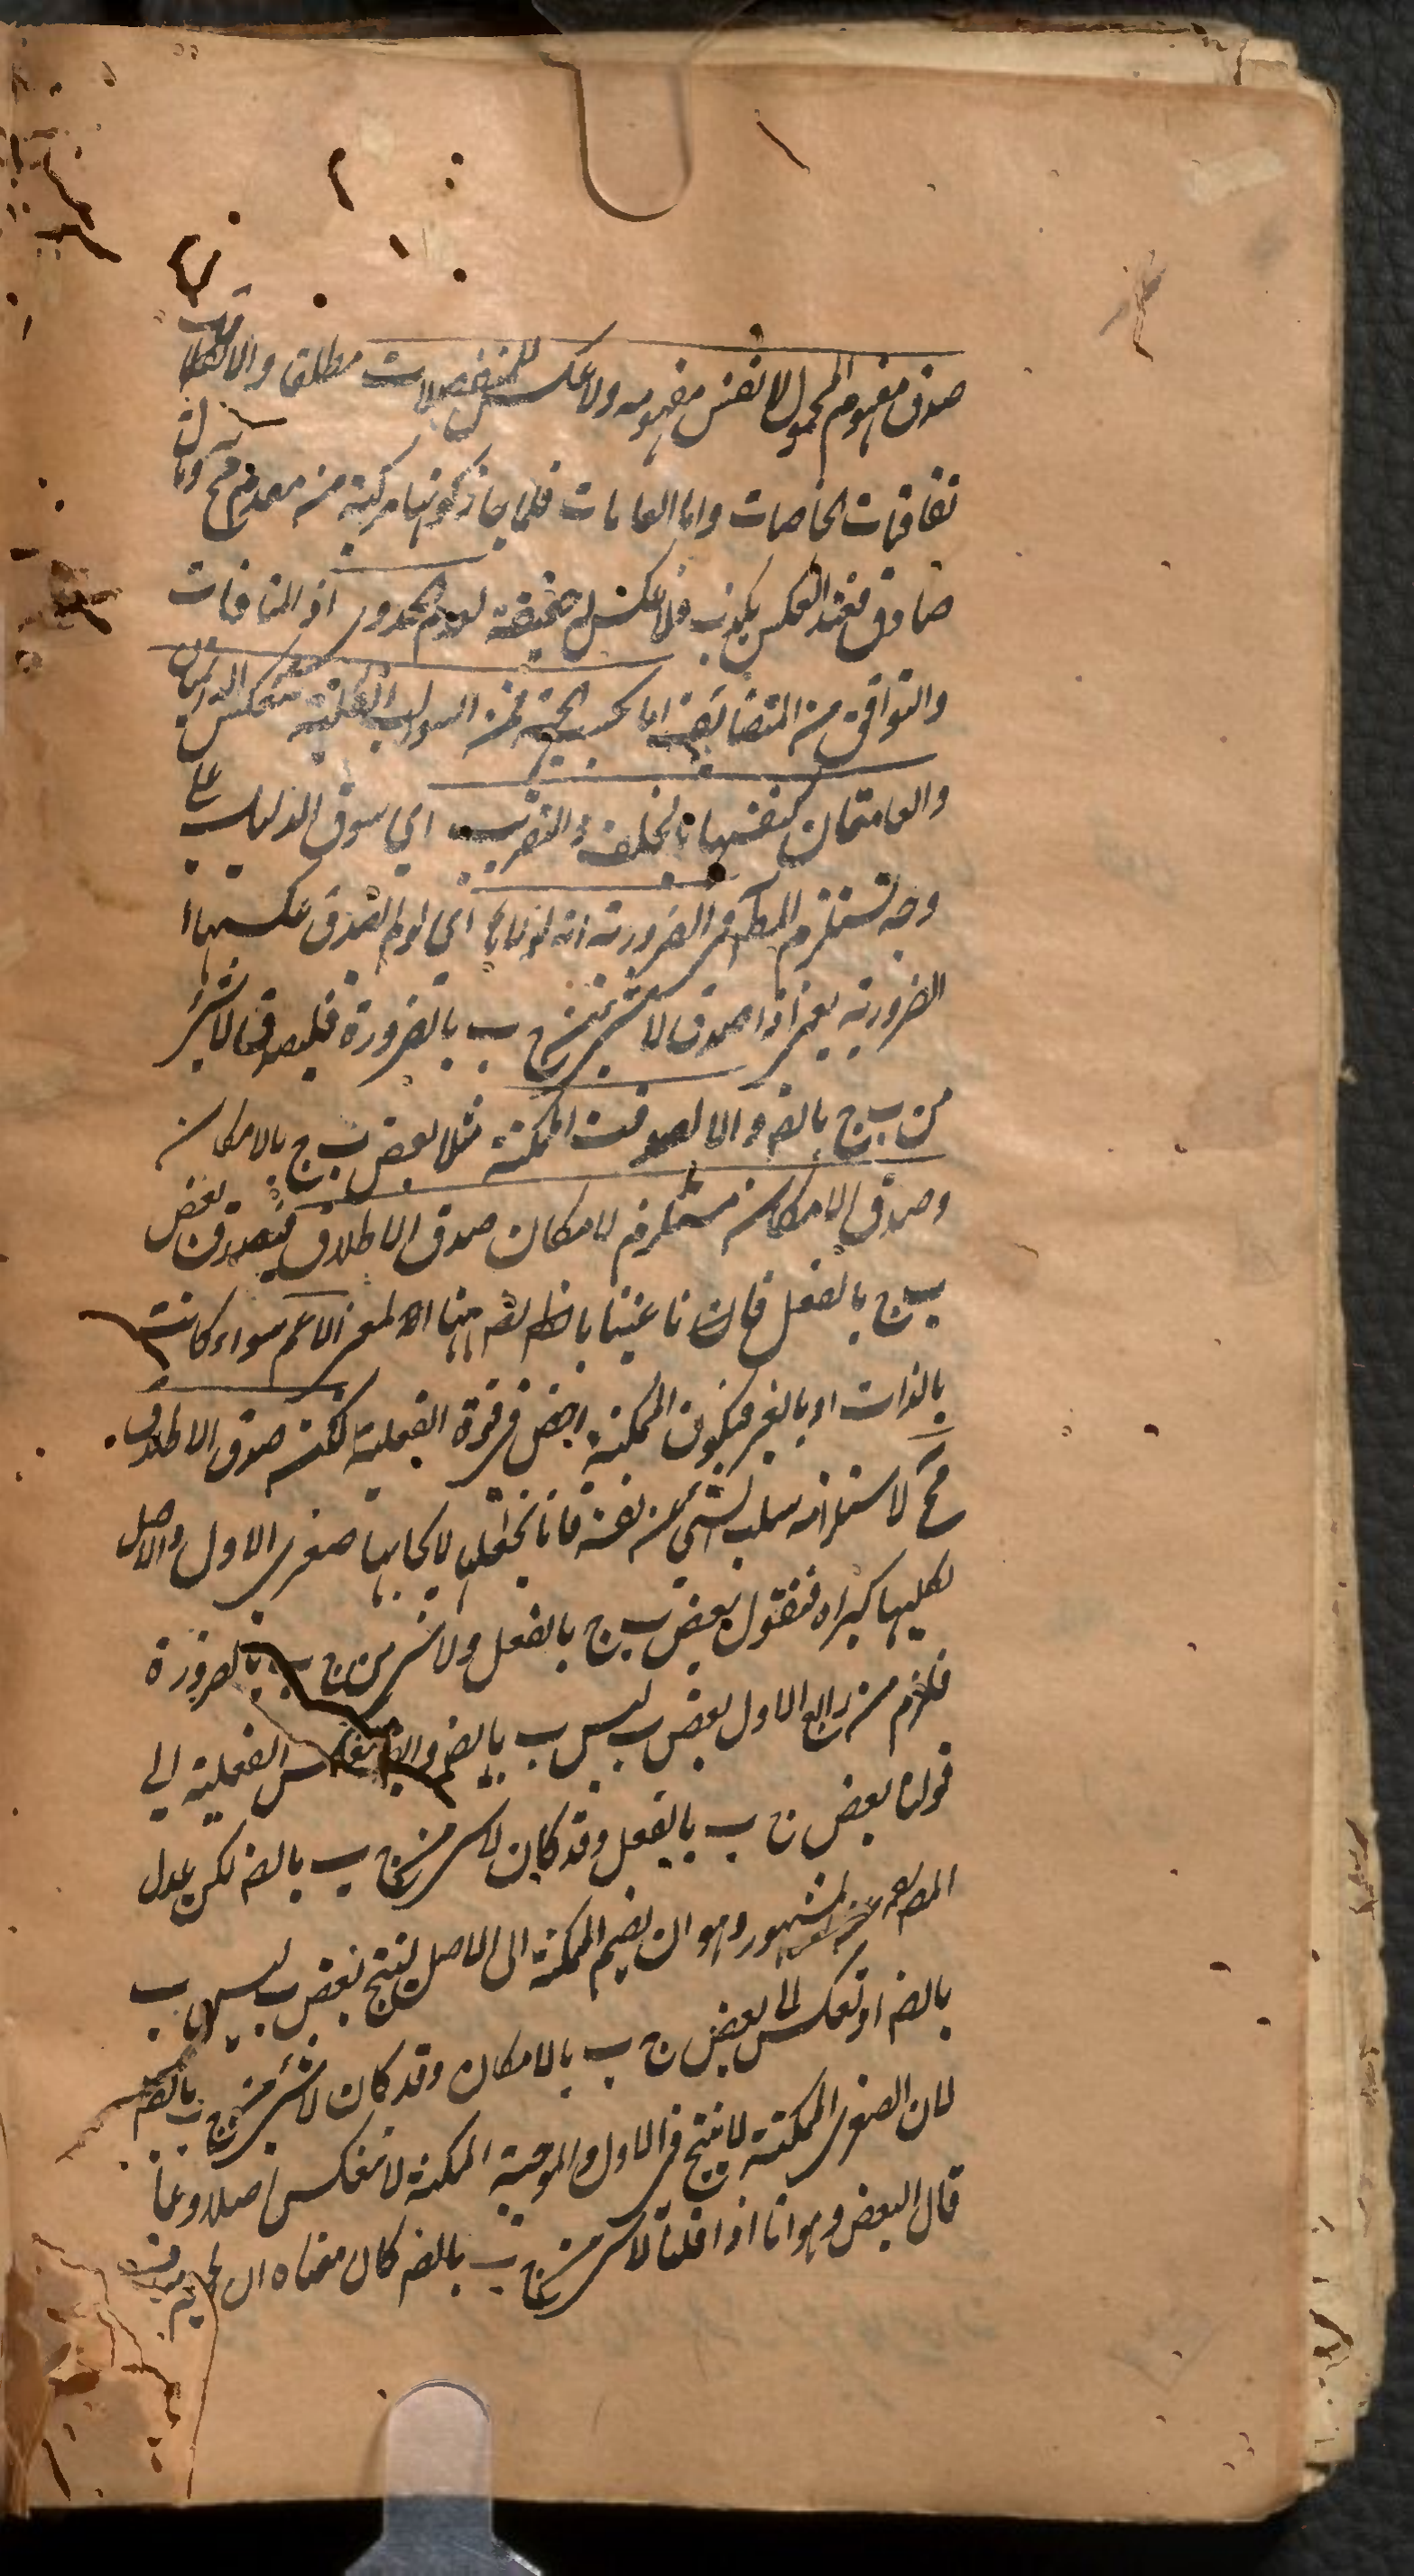 صدق مفهوم المحمول لا نفس مفهومه ولا عكس للمنفصلات مطلقا والاتفاقيات
تفاقيات الخاصات واما العامات فلما جاز كونها مركبة من مقدم مح وتال
صادق فعند العكس يكذب فلا عكس له حقيقة لعدم الجدوى اذ المنافات
والتوافق من المتضايف اما بحسب الجهة فمن السوالب الكلية تنعكس الدائمتان
والعامتان كنفسها بالخلف والتقريب اي سوق الدليل على
وجه يستلزم المط في الضرورية انه لولاه اي لو لم تصدق عكسها
الضرورية يعني اذا صدق لا شئ من ج ب بالضرورة فليصدق لا شئ
من ب ج بالضـ والا لصدقت الممكنة مثلا بعض ب ج بالامكان
وصدق الامكان مستلزم لامكان صدق الاطلاق فيصدق بعض
ب ج بالفعل فان ما عنينا بالضـ ههنا المعنى الاعم سواء كانت
بالذات او بالغير فيكون الممكنة اخص في قوة الفعلية لكن صدق الاطلاق
مح لاستلزامه سلب الشئ عن نفسه فانا نجعلها لايجابها صغرى الاول والاصل
لكليها كبراه فنقول بعض ب ج بالفعل ولا شئ من ج ب بالضرورة
فلزم من رابع الاول بعض ب ليس ب بالضـ وايضا تنعكس الفعلية الى
قولنا بعض ج ب بالفعل وقد كان لا شئ من ج ب بالضـ لكن عدل
المصـ عن المشهور وهو ان نضم الممكنة الى الاصل لينتج بعض ب ليس ب
بالضـ او تعكس الى بعض ج ب بالامكان وقد كان لا شئ من ج ب بالضـ
لان الصغرى الممكنة لا ينتج في الاول والموجبة الممكنة لا تنعكس اصلا وعما
قال البعض وهو انا اذا قلنا لا شئ من ج ب بالضـ كان معناه ان